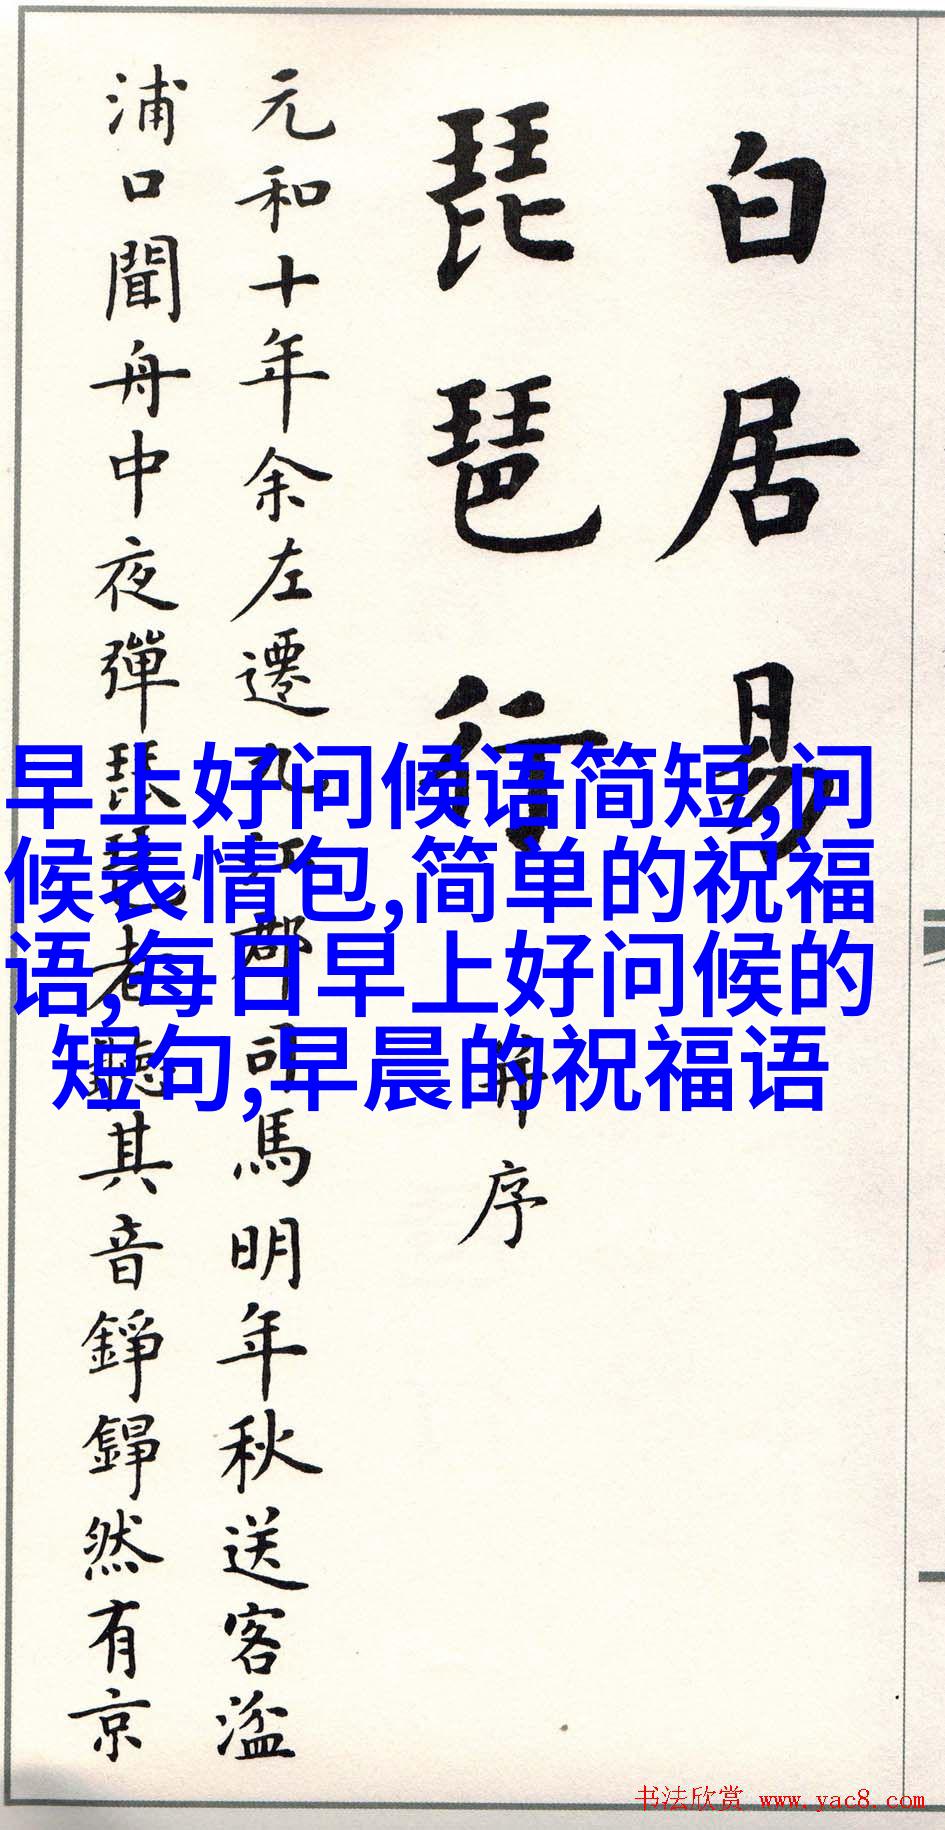 白居易
琵琶行
并序
元和十年余左遷九江郡司馬明年秋送客湓
浦口聞舟中夜彈琵琶者聽其音錚錚然有京
早上好问候语简短,问
候表情包,简单的祝福
语,每日早上好问候的
短句,早晨的祝福语
书法欣赏 www.yac8.com